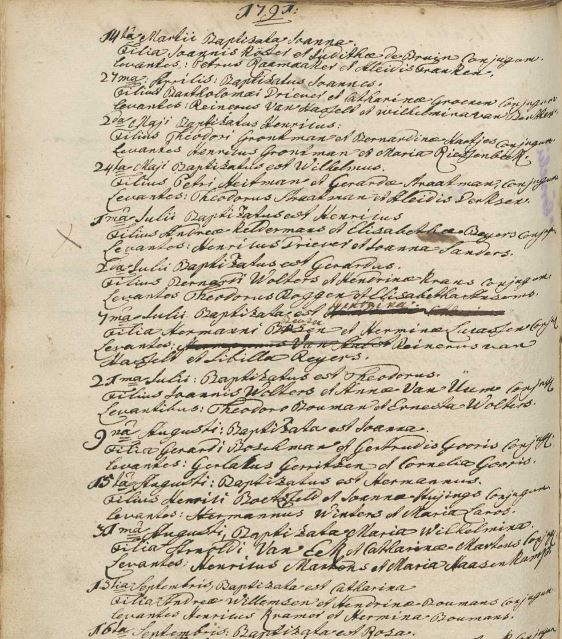 1791:
14ta Martii Baptizata Joanna.
Filia Joannis Koster et Judithæ de Bruijn Conjugum.
Levantes: Petrus Raamaker et Aleidis Franken.
27ma Aprilis: Baptizatus Joannes.
Filius Bartholomæi Driever et Catharinæ Groenen Conjugum
Levantes: Reinerus Van Hasselt et Wilhelmina van
2da Maji Baptizatus Henricus:
Filius Theodori Grontman et Bernardinæ Haafjes Conjugum
Levantes Henricus Grontman et Maria
24ta Maji Baptizatus est Wilhelmus.
Filius Petri Heitman et Gerardæ Straatman, Conjugum
Levantes: Theodorus Straatman et Aleidis Derksen.
1ma Julii Baptizatus est Henricus
Filius Andreæ Keldermans et Elisabethæ Reyers
Levantes: Henricus Driever et Joanna Sanders.
2da Julii Baptizatus est Gerardus.
Filius Bernardi Wolters et Hendrinæ Krans Conjugum
Levantes Theodorus Roggen et Elisabetha
7ma Julii Baptizata est
Filia Hermanni et Herminæ Lucassen
Levantes: Reinerus van
Hasselt et Sibilla Reyers.
21ma Julii: Baptizatus est Theodorus.
Filius Joannis Wolters et Annæ Van Uum
Levantibus: Theodoro Bouman et Ernesta Wolters.
9na Augusti: Baptizata est Joanna.
Filia Gerardi Boschman et Gertrudis Gooris
Levantes: Gerlakus Gerritzen et Cornelia Gooris.
15ta Augusti: Baptizatus est Hermannus.
Filius Henrici et Joannæ Conjugum
Levantes: Hermannus Winters et Maria
31ma Augusti, Baptizata Maria Wilhelmina.
Filia Arnoldi Van et Catharinæ Martens
Levantes: Henricus Martens et Maria Haasenkamp
13tia Septembris, Baptizata est Catharina
Filia Andreæ Willemsen et Hendrinæ Boumans Conjugum
Levantes Henricus Kramer et Hermina Boumans.
16ta Septembris: Baptizata est Rosa.